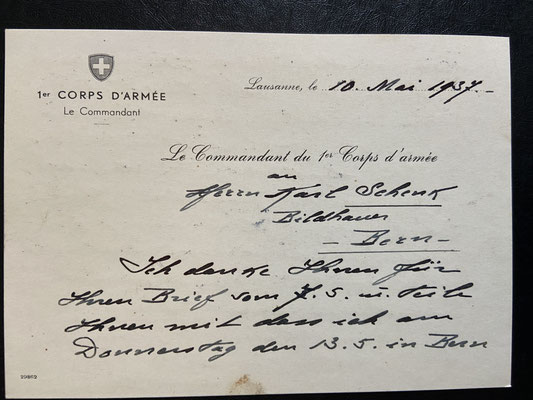 1er CORPS D'ARMÉE
Le Commandant
Lausanne, le 10. Mai 1937.-
Le Commandant du 1er Corps d'armée
an
Herrn Karl Schenk
Bildhauer
- Bern -
Ich danke Ihnen für
Ihren Brief vom 7. 5. u. teile
Ihnen mit dass ich am
Donnerstag den 13. 5. in Bern